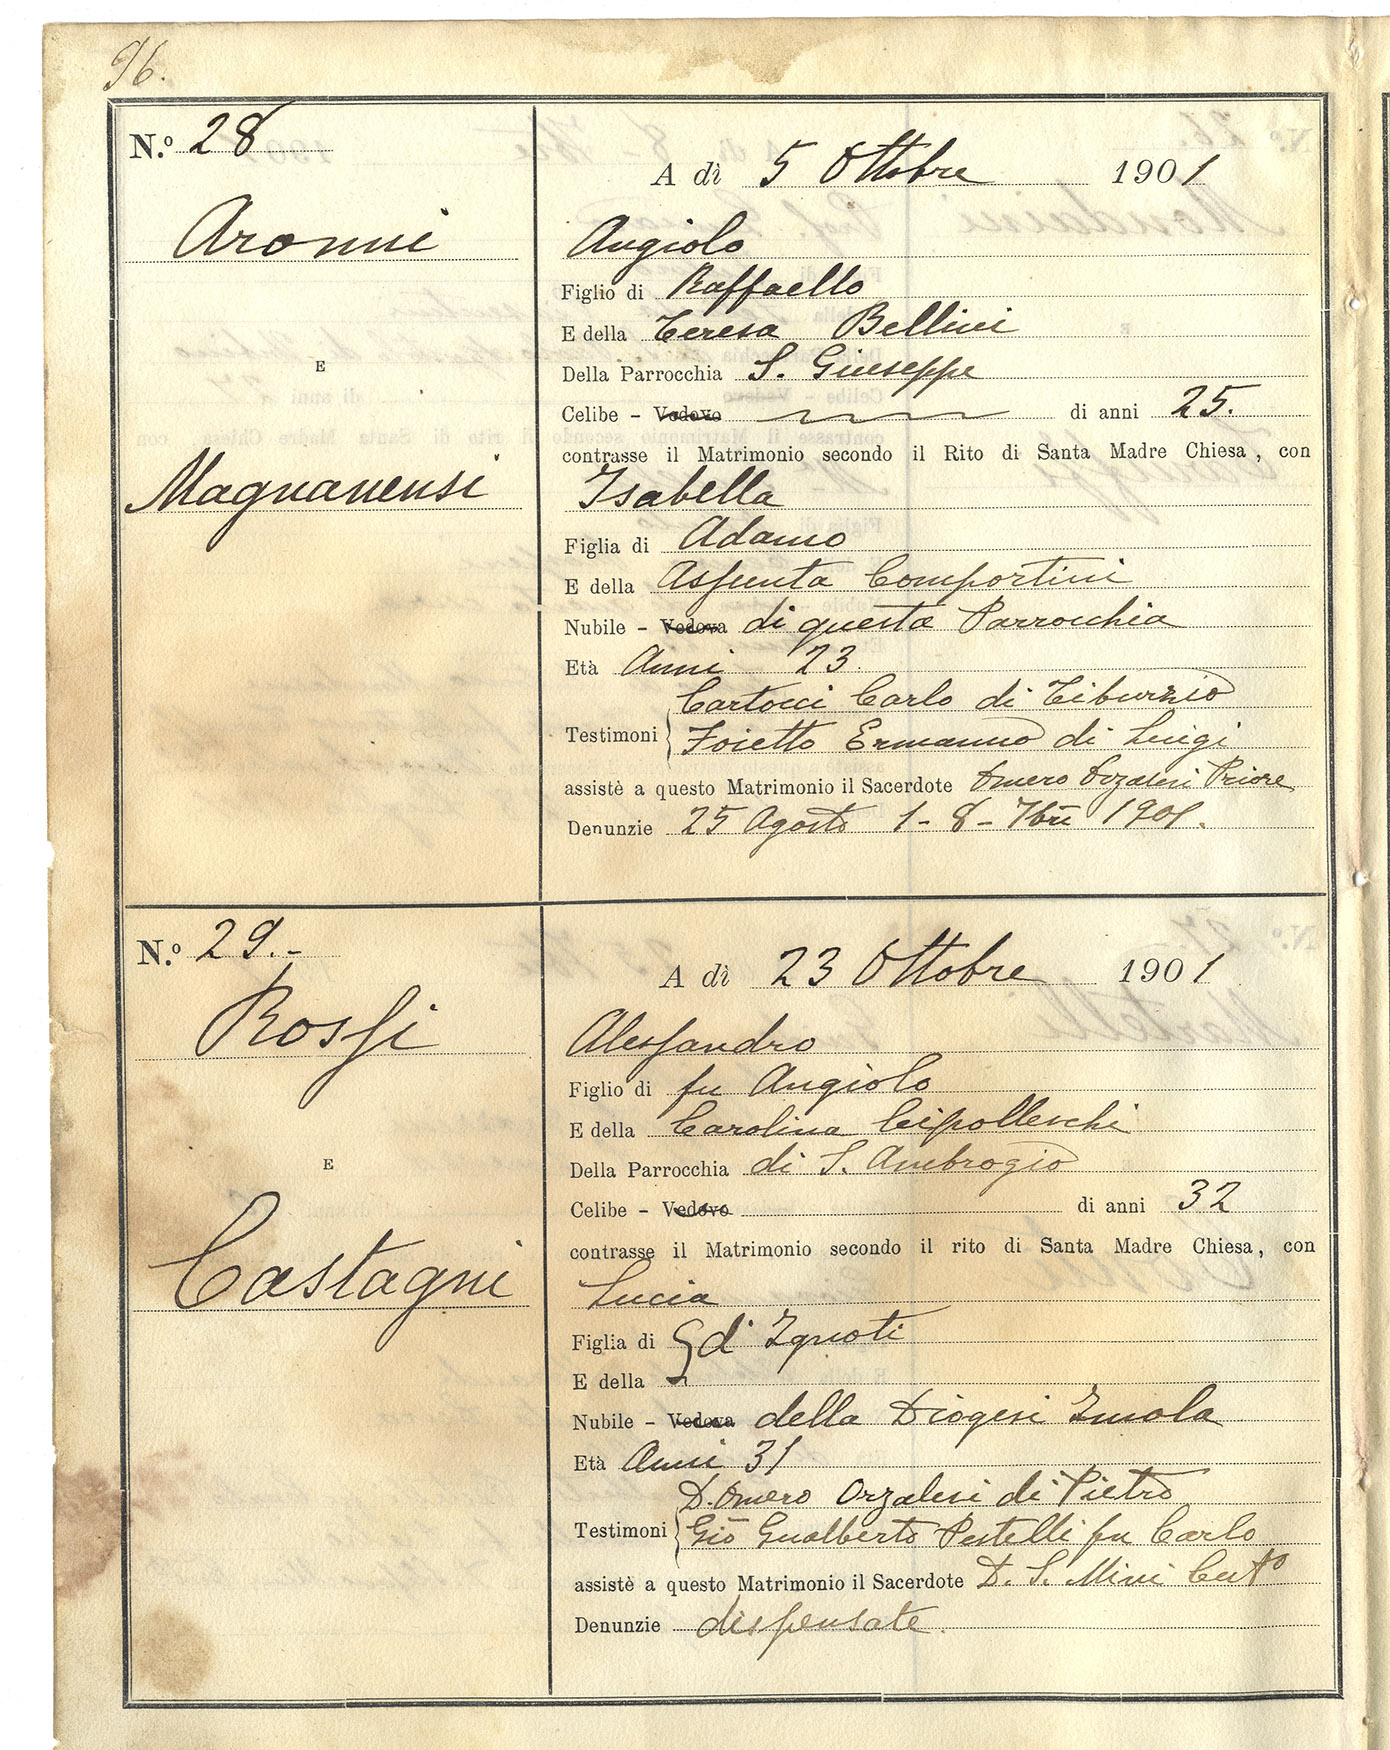 96.
N.º 28
A dì 5 Ottobre 1901
Aronni
Angiolo
Figlio di Raffaello
E della Teresa Bellini
E
Della Parrocchia S. Giuseppe
Celibe - Vedovo di anni 25.
contrasse il Matrimonio secondo il Rito di Santa Madre Chiesa, con
Magnanensi
Isabella
Figlia di Adamo
E della Assunta Comportini
Nubile - Vedova di questa Parrocchia
Età Anni 23.
Cartocci Carlo di Tiburzio
Testimoni Foietto Ermanno di Luigi
assistè a questo Matrimonio il Sacerdote Omero Orzalesi Priore
Denunzie 25 Agosto 1 - 8 - 7bre 1901.
N.º 29.-
A dì 23 Ottobre 1901
Rossi
Alessandro
Figlio di fu Angiolo
E della Carolina Cipolleschi
E
Della Parrocchia di S. Ambrogio
Celibe - Vedovo di anni 32
contrasse il Matrimonio secondo il rito di Santa Madre Chiesa, con
Castagni
Lucia
Figlia di d'Ignoti
E della
Nubile - Vedova della Diogesi Imola
Età Anni 31
D. Omero Orzalesi di Pietro
Testimoni Gio Gualberto Pestelli fu Carlo
assistè a questo Matrimonio il Sacerdote D. S. Mini Cur.to
Denunzie dispensate.